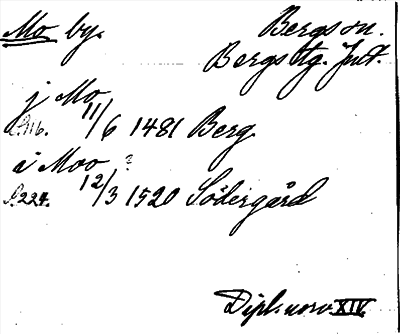 Mo by. Bergs sn.
Bergs tg. Jmt.
j Mo
s. 116. 11/6 1481 Berg.
i Moo ?
s. 224. 12/3 1520 Södergård
Dipl. norv. XIV.